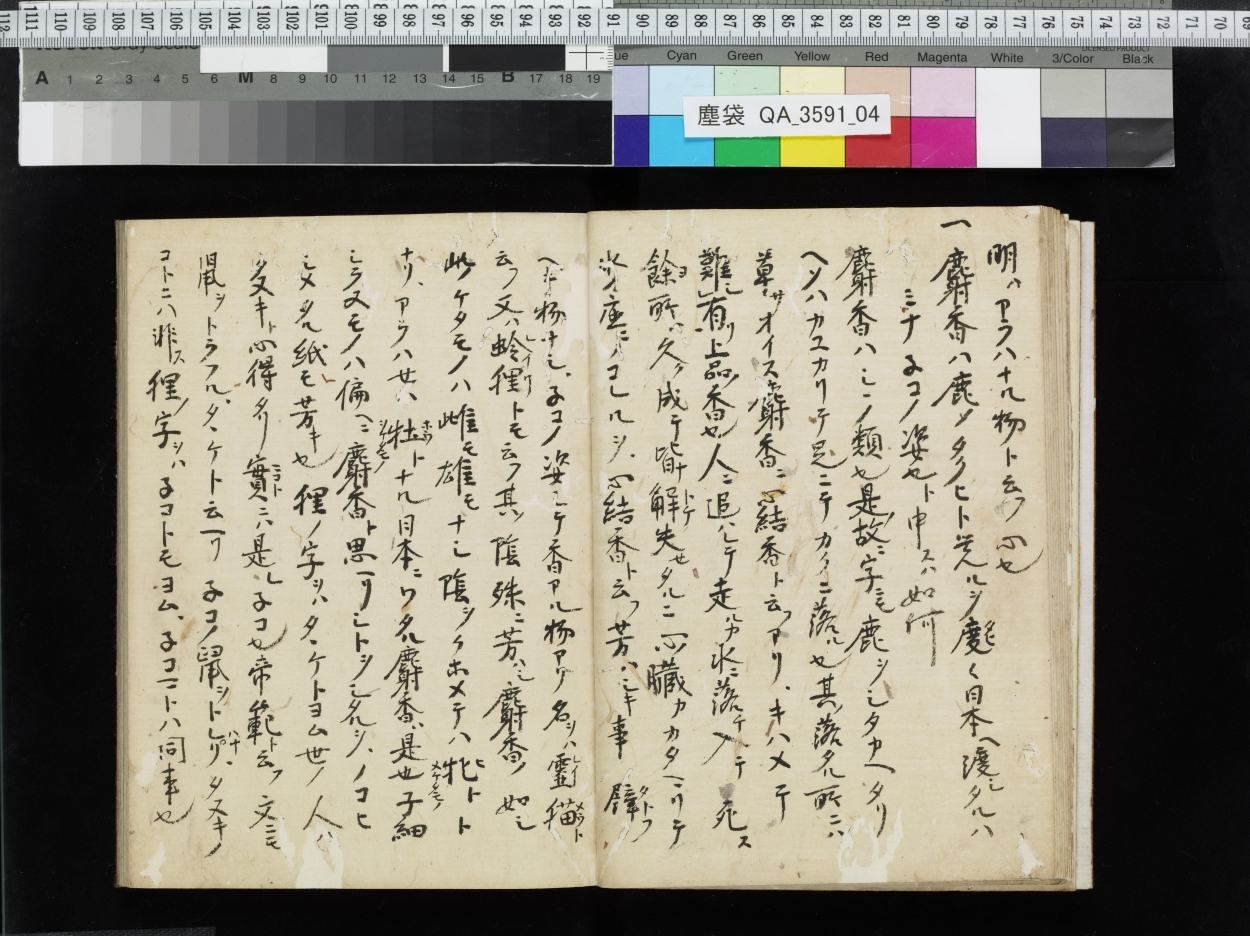 塵袋 QA_3591_04
Cyan Green Yellow Red Magenta White 3/Color Black
A 1 2 3 4 5 6 M 8 9 10 11 12 13 14 15 B 17 18 19
明ハアラハナル物ト云フ心也
一麝香ハ鹿ノタクヒト覚ルヲ 日本ヘ渡シタルハ
ミナ子コノ姿也ト申スハ如何
麝香ハシヽノ類也是故ニ字ニモ鹿ヲシタカヘタリ
ヘソハカユカリテ足ニテカクニ落ル也其ノ落タル所ニハ
草サヲオイス麝香ニ心結香ト云フアリ、キハメテ
難シ有リ上品ノ香也人ニ追ハレテ走ルカ水ニ落チ入テ死ス
餘所ハ久ク成テ皆ナ解ケ失セタルニ心臓カカタマリテ
水ノ底ニノコレルヲ、心結香ト云フ芳ハシキ事譬タトフ
ヘキ物ナシ、子コノ姿ニテ香アル物アリ名ヲハ靈猫
云フ又ハ蛉狸トモ云フ其ノ陰殊ニ芳ハシ麝香ノ如シ
此ノケタモノハ雌モ雄モナシ陰ヲケホメテハ牝ト
ナリ、アラハセハ牡トナル日本ニワタル麝香、是也子細
シラヌモノハ偏ヘニ麝香ト思ヘリ
シメタル紙モ芳キ也狸ノ字ヲハタヽケトヨム世ノ人ハ
タヌキト心得タリ實ニハ是レ子コ也帝範ト云フ文ニモ
鼠ヲトラフル、タヽケト云ヘリ子コノ鼠ヲトル タヌキノ
コトニハ非ス狸ノ字ヲハ子コトモヨム、子コマトハ同事也